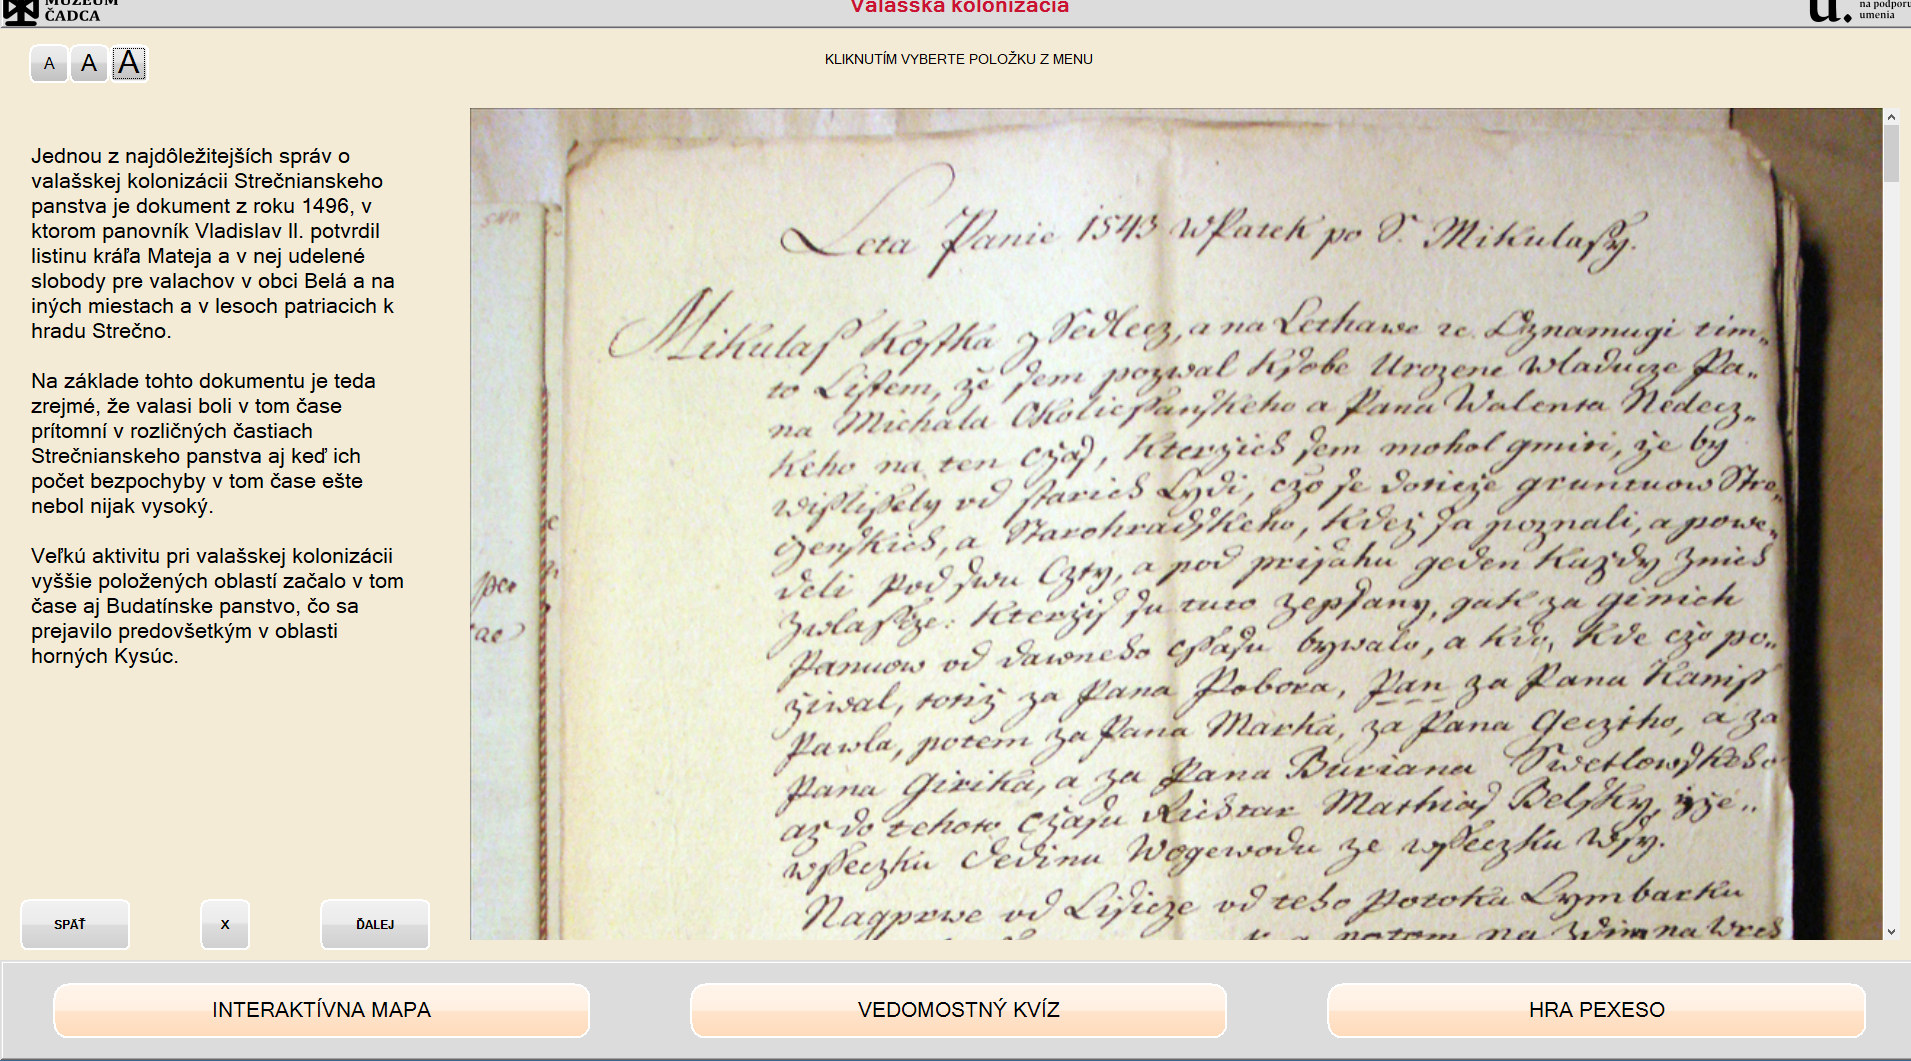 MÚZEUM
ČADCA
Valašská kolonizácia
na podporu
umenia
A A A
KLIKNUTÍM VYBERTE POLOŽKU Z MENU
Jednou z najdôležitejších správ o
valašskej kolonizácii Strečnianskeho
panstva je dokument z roku 1496, v
ktorom panovník Vladislav II. potvrdil
listinu kráľa Mateja a v nej udelené
slobody pre valachov v obci Belá a na
iných miestach a v lesoch patriacich k
hradu Strečno.
Na základe tohto dokumentu je teda
zrejmé, že valasi boli v tom čase
prítomní v rozličných častiach
Strečnianskeho panstva aj keď ich
počet bezpochyby v tom čase ešte
nebol nijak vysoký.
Veľkú aktivitu pri valašskej kolonizácii
vyššie položených oblastí začalo v tom
čase aj Budatínske panstvo, čo sa
prejavilo predovšetkým v oblasti
horných Kysúc.
Leta Panie 1543 w Patek po S. Mikulassy.
Mikulass Kostka z Sedlecz, a na Lethawe rc. Oznamugi tim-
to Listem, že sem pozwal k sobe Urozene Wladucze Pa-
na Michala Okoliessanskeho a Pana Walenta Nedecz-
keho na ten czas, kterzich sem mohol gmiti, že by
wisslissely od starich Lydi, czo se doticze gruntuow Stre-
czenskich, a Starohradskeho, kdez sa poznali, a powe-
deli pod swu Czty, a pod prisahu geden kazdy znich
zwlasscze: kterzis su tuto zepsany, gak za ginich
Panuow od dawneho cssasu bywalo, a kdo, kde czo po-
ziwal, totiz za Pana Pobora, Pan za Pana Kaniss
Pawla, potem za Pana Marka, za Pana Gecziho, a za
Pana Girika, a za Pana Buriana Swetlowskeho
az do tehoto czasu Richtar Mathias Belsky, yze
wsseczku Dedinu Wogewodu ze wsseczku wsy.
Nagprwe od Lisicze od teho Potoka Lymbarku
potom na
SPÄŤ
X
ĎALEJ
INTERAKTÍVNA MAPA
VEDOMOSTNÝ KVÍZ
HRA PEXESO